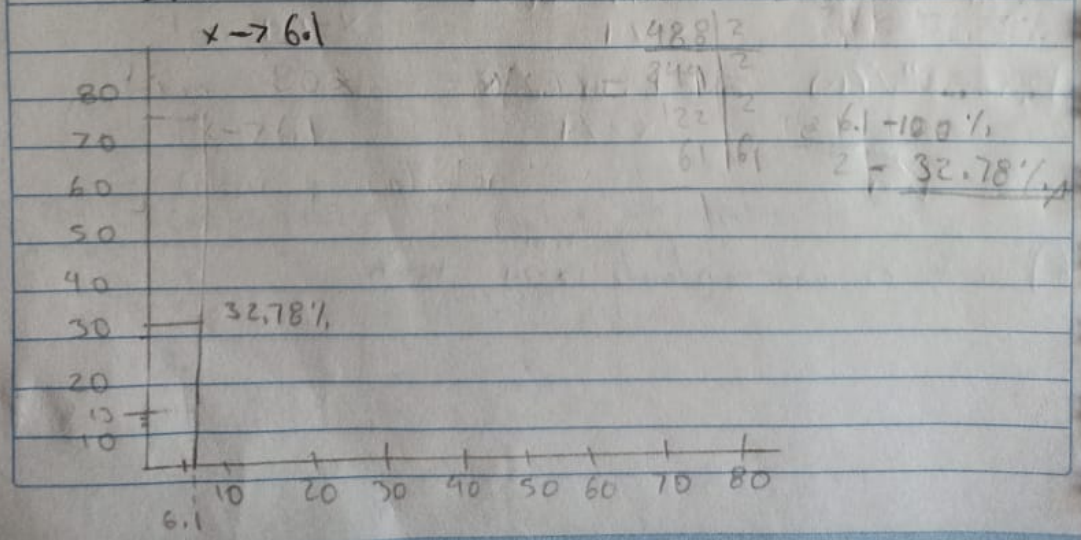 x → 6.1
488 | 2
244 | 2
122 | 2
61 | 61
6.1 - 100 %
2 - 32.78 %
80
70
60
50
40
30
32.78 %
20
10
10 20 30 40 50 60 70 80
6.1